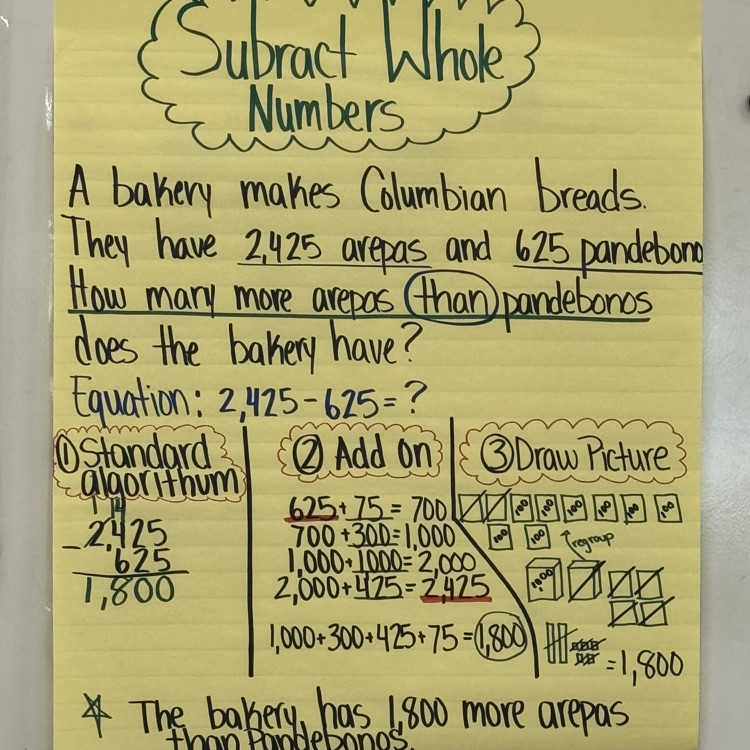 Subract Whole
Numbers
A bakery makes Columbian breads.
They have 2,425 arepas and 625 pandebono
How many more arepas than pandebonos
does the bakery have?
Equation: 2,425-625=?
① Standard
algorithum
1 14
2,425
- 625
1,800
② Add On
625+75=700
700+300=1,000
1,000+1000=2,000
2,000+425=2,425
1,000+300+425+75=1,800
③ Draw Picture
100 100 100 100 100 100
100 100
regroup
1,000
=1,800
☆ The bakery has 1,800 more arepas
than Pandebonos.